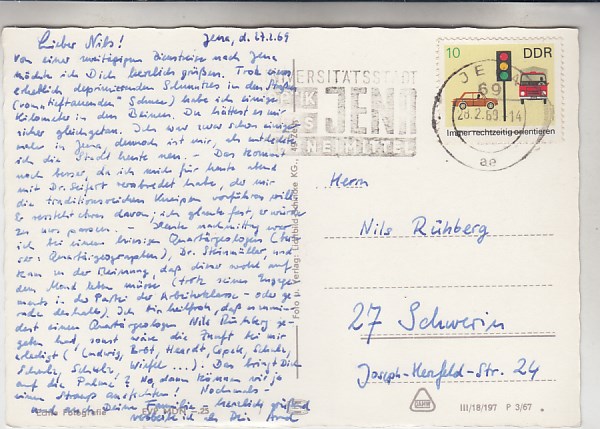 Jena, d. 27.2.69
Lieber Nils!
Von einer
Dienstreise nach Jena
möchte ich Dich herzlich grüßen. Trotz eines
erheblich deprimierenden Schmutzes in den Straßen
Schnee) habe ich einige
Kilometer in den Beinen. Du hättest es mir
sicher gleichgetan. Ich war zwar schon einige
male in Jena, dennoch ist mir, als entdeckte
ich die Stadt heute neu. - Das kommt
noch besser, da ich mich für heute abend
mit Dr. Seifert verabredet habe, der mir
die traditionsreichen Kneipen vorführen will.
zu uns passen. - Heute nachmittag war
ich bei einem hiesigen Quartärgeologen
Quartärgeographen), Dr. Steinmüller, und
kam zu der Meinung, daß dieser wohl auf
dem Mond leben müsse (trotz seines Engage-
ments in der Partei der Arbeiterklasse - oder ge-
rade deshalb). Ich bin heilfroh, daß es
einen Quartärgeologen Nils Rühberg ge-
geben hat, sonst wäre die Zunft bei mir
erledigt (Ludwig,
Schulz, Schulz,
...). Das bringt Dich
auf die Palme? No, dann können wir ja
einen Strauß ausfechten! Nochmals
auch Deine Familie - herzlich grüßend
verbleibe ich Dein
Echte Fotografie
EVP MDN -.25
Foto u. Verlag: Lichtbild
KG.,
UNIVERSITÄTSSTADT
JENA
10
DDR
Immer rechtzeitig orientieren
JENA
69
28.2.69-14
ae
Herrn
Nils Rühberg
27 Schwerin
Joseph-Herzfeld-Str. 24
III/18/197 P 3/67